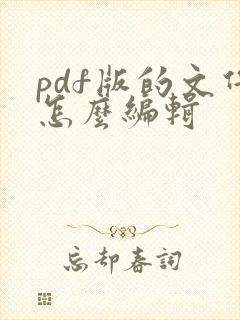 pdf版的文件
怎麼編輯
忘却春詞